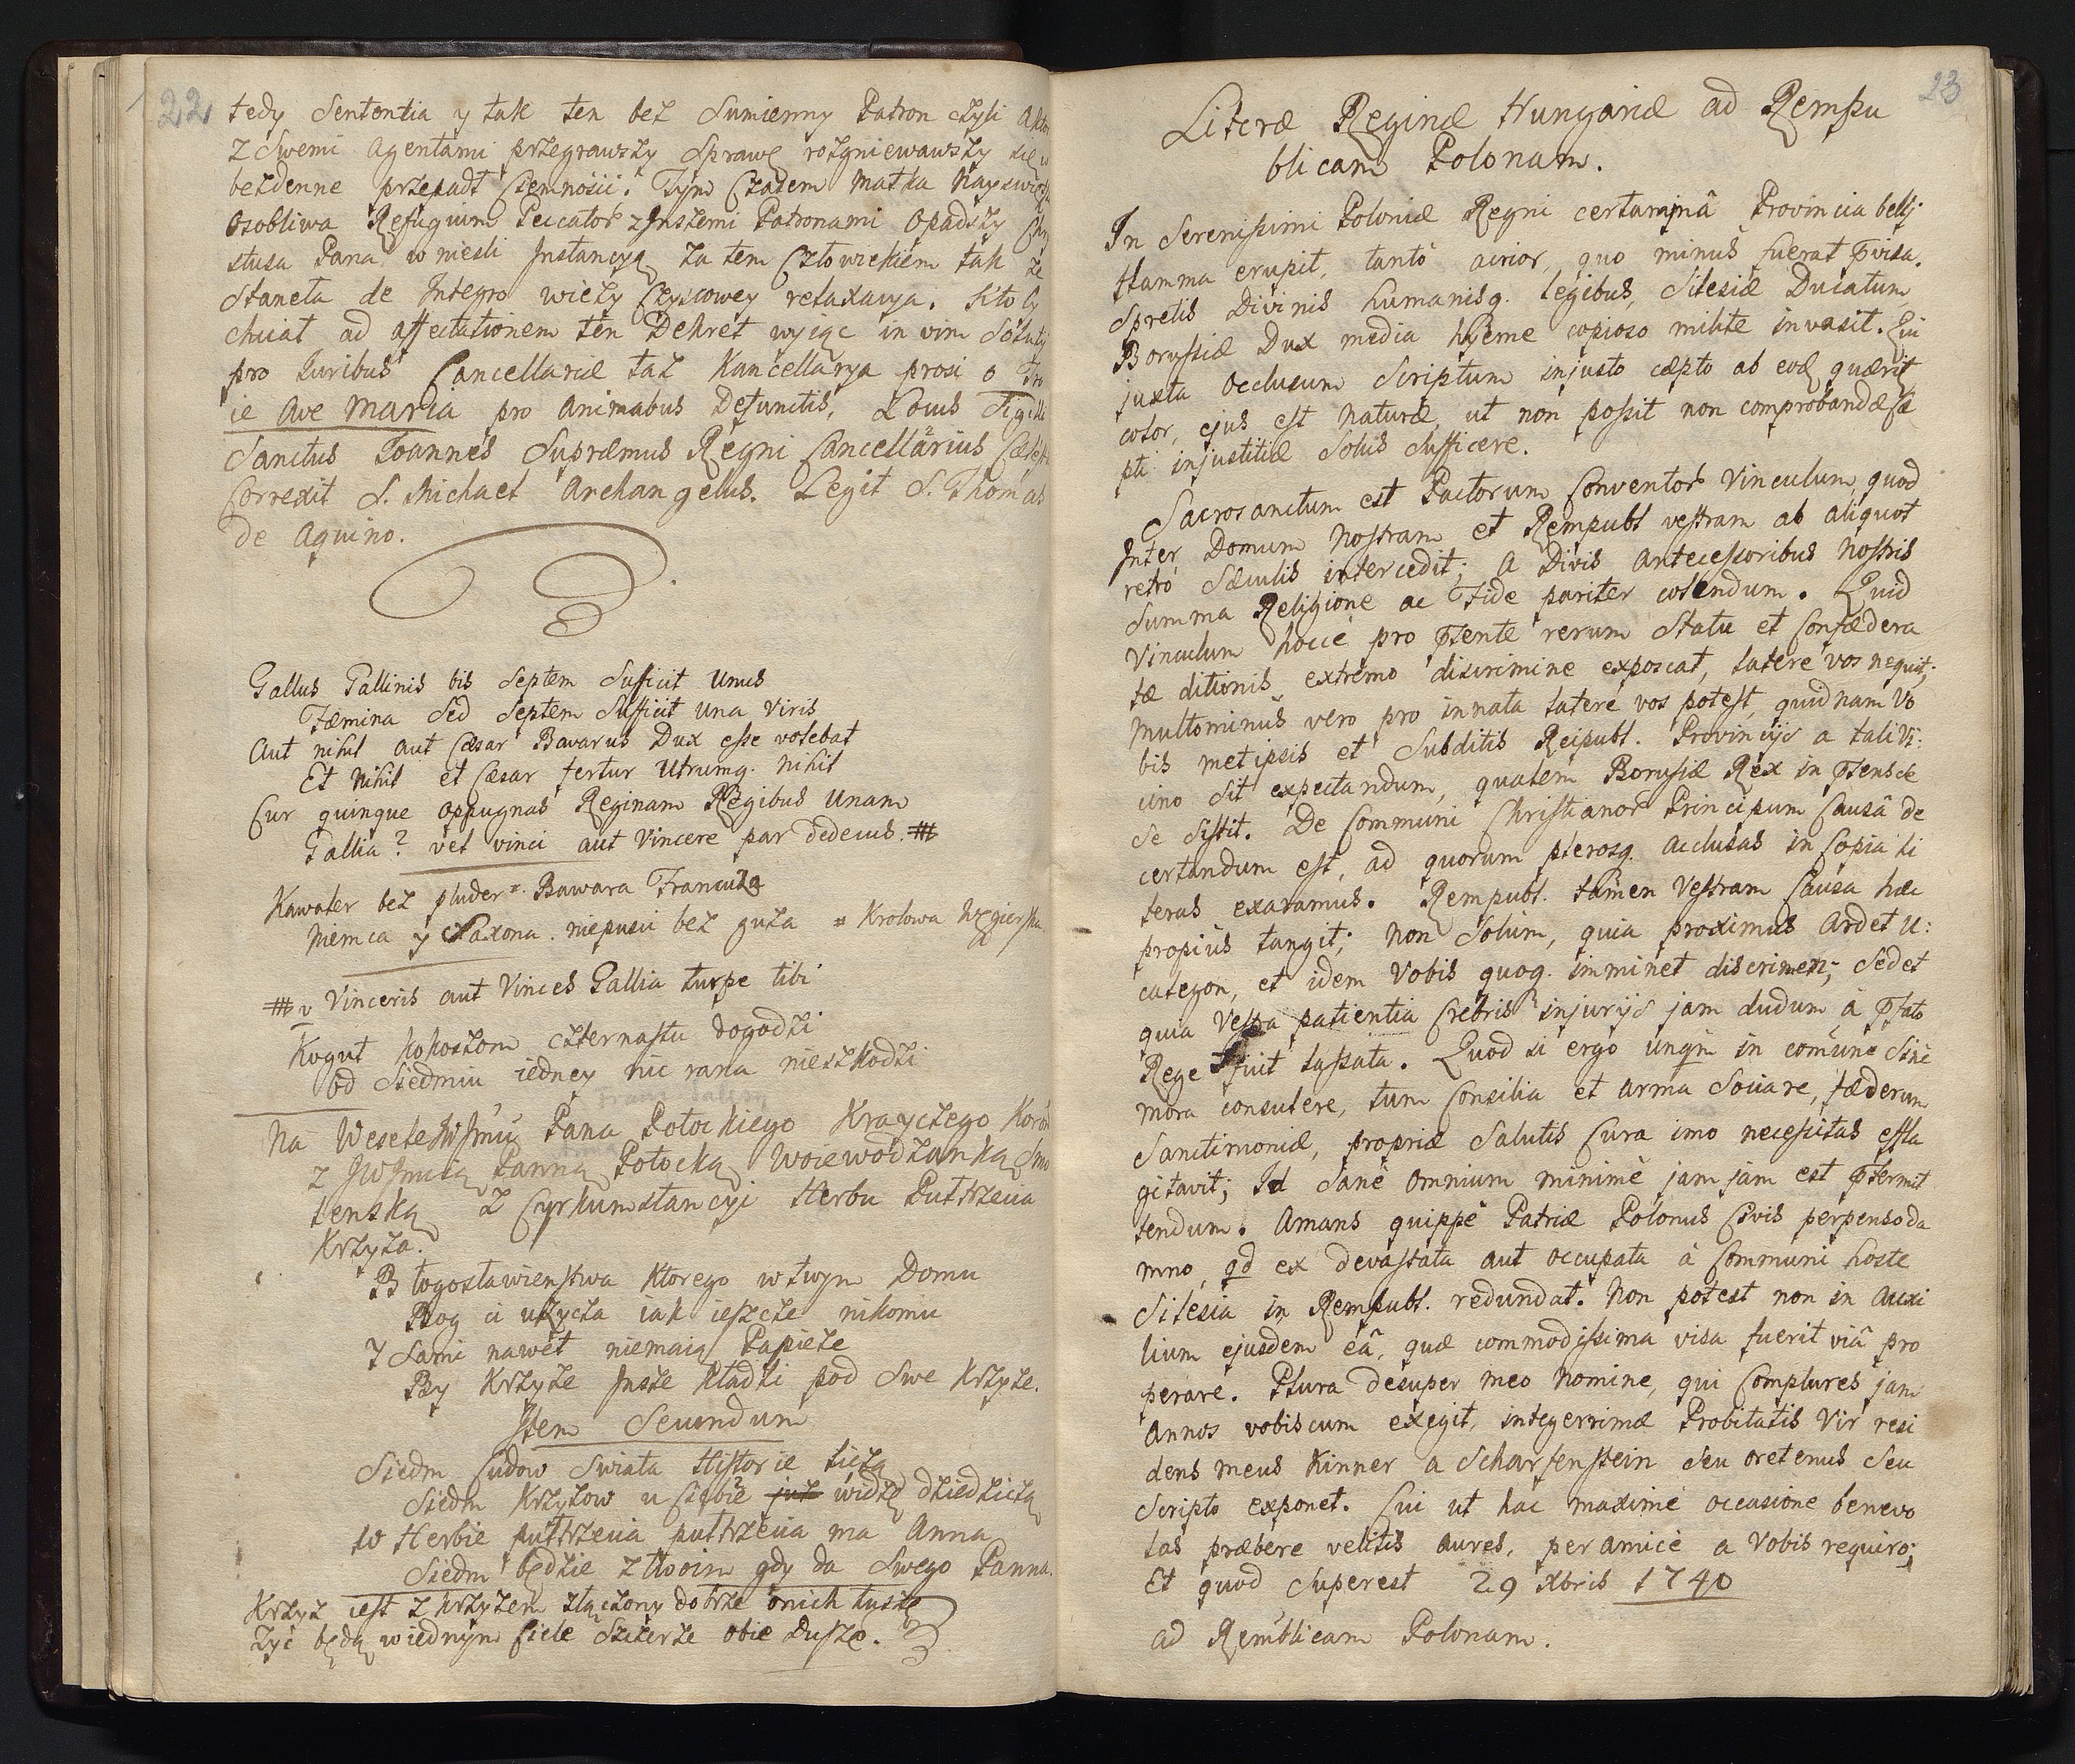 22
tedy Sententia y tak ten bez Sumienny Patron czyli Aktor
z Swemi Agentami przegrawszy Sprawę rozgniewawszy się w
bezdenne przepadł Ciemnosci. Tym Czasem Matka Nayswięt
Osobliwa Refugium Peccator z Inszemi Patronami Opadszy Chry
stusa Pana wniesli Instancyą za tem Człowiekiem tak ze
Staneła de Integro wiezy Czyscowey relaxacya. Kto by
chciał ad affectationem ten Dekret wyiąc in vim
pro Iuribus Cancellariæ taz Kancellarya prosi o
ie Ave Maria pro Animabus Defunctis, Locus Sigilli
Sanctus Joannes Supræmus Regni Cancellarius
Correxit S. Michael Archangelus. Legit S. Thomas
de Aquino.
Gallus Gallinis bis Septem Sufficit Unus
Fæmina Sed Septem Sufficit Una Viris
Aut nihil aut Cæsar Bavarus Dux esse volebat
Et Nihil et Cæsar fertur Utrumq. nihil
Cur quinque oppugnas Reginam Regibus Unam
Gallia? vel vinci aut Vincere par dedecus. #
Kawaler bez pluder =. Bawara Francuza
Niemca y Saxona. niepusci bez guza = Krolowa Węgierska
# v Vinceris aut Vinces Gallia turpe tibi
Kogut kokoszom czternastu dogodzi
Od Siedmiu iedney nic rana nieszkodzi
Na Wesele Pana Potockiego Krayczego Koron
z Panną Potocką Woiewodzanką Smo
lenską z Cyrkumstancyi Herbu Pułtrzecia
Krzyza.
Błogosławienstwa ktorego w twym Domu
Bog ci uzycza iak ieszcze nikomu
I Sami nawet niemaią Papieze
By Krzyze Insze kładzi pod Swe Krzyze.
Item Secundum
Siedm Cudow Swiata Historie liczą
Siedm Krzyzow u Ciebie widzę dziedziczą
W Herbie pułtrzecia pułtrzecia ma Anna
Siedm będzie z twoim gdy da Swego Panna.
Krzyz iest z krzyzem złączony dobrze onich tuszę
Zyć będą wiednym Ciele Szczerze obie Dusze.
23
Literæ Reginæ Hungariæ ad Rempu
blicam Polonam.
In Serenissimi Poloniæ Regni Provincia bellj
flamma erupit, tantò acrior, quo minus fuerat pvisa.
Spretis Divinis humanisq. legibus, Silesiæ Ducatum
Borussiæ Dux media hyeme copioso milite invasit. Qui
juxta Occlusum Scriptum injusto cæpto ab eoq quærit
color, ejus est Naturæ, ut non possit non comprobandæ
pti injustitiæ Solus Sufficere.
Sacrosanctum est Pactorum Conventor Vinculum, quod
Inter Domum Nostram et Rempubl vestram ab aliquot
retrò Sæculis intercedit; a Divis Antecessoribus Nostris
Summa Religione ac Fide pariter colendum. Quid
Vinculum hocce pro psente rerum Statu et Confædera
tæ ditionis extremo discrimine exposcat, latere vos nequit;
Multominus vero pro innata latere vos potest, quidnam Vo
bis metipsis et Subditis Reipubl. Provinciis a tali Vi:
cino Sit expectandum, qualem Borussiæ Rex in psens de
se Sistit. De Communi Christianor Principum Causâ de
certandum est, ad quorum plerosq. acclusas in Copia li
teras exaramus. Rempubl. tamen Vestram Causa hæc
propius tangit; non Solum, quia proximus Ardet U:
calegon, et idem Vobis quoq. imminet discrimen; Sed et
quia Vestra patientia Crebris injurijs jam dudum à pfato
Rege fuit lassata. Quod si ergo unqm in comune Sine
mora consulere, tum Consilia et arma Sociare, fæderum
Sanctimoniæ, propriæ Salutis Cura imo necessitas effla
gitavit; Id Sanè Omnium minimè jam jam est ptermit
tendum. Amans quippè Patriæ Polonus Civis perpenso da
mno, qd ex devastata aut occupata à Communi hoste
Silesia in Rempubl. redundat. Non potest non in Auxi
lium ejusdem eâ, quæ commodissima visa fuerit viâ pro
perare. Plura desuper meo Nomine, qui Complures jam
Annos vobiscum exegit, integerrimæ Probitatis Vir resi
dens meus Kinner a Scharfenstein Seu oretenus Seu
Scripto exponet. Cui ut hac maximè occasione benevo
las præbere velitis aures, peramicè a Vobis requiro;
Et quod Superest 29 Xbris 1740
ad Remblicam Polonam.